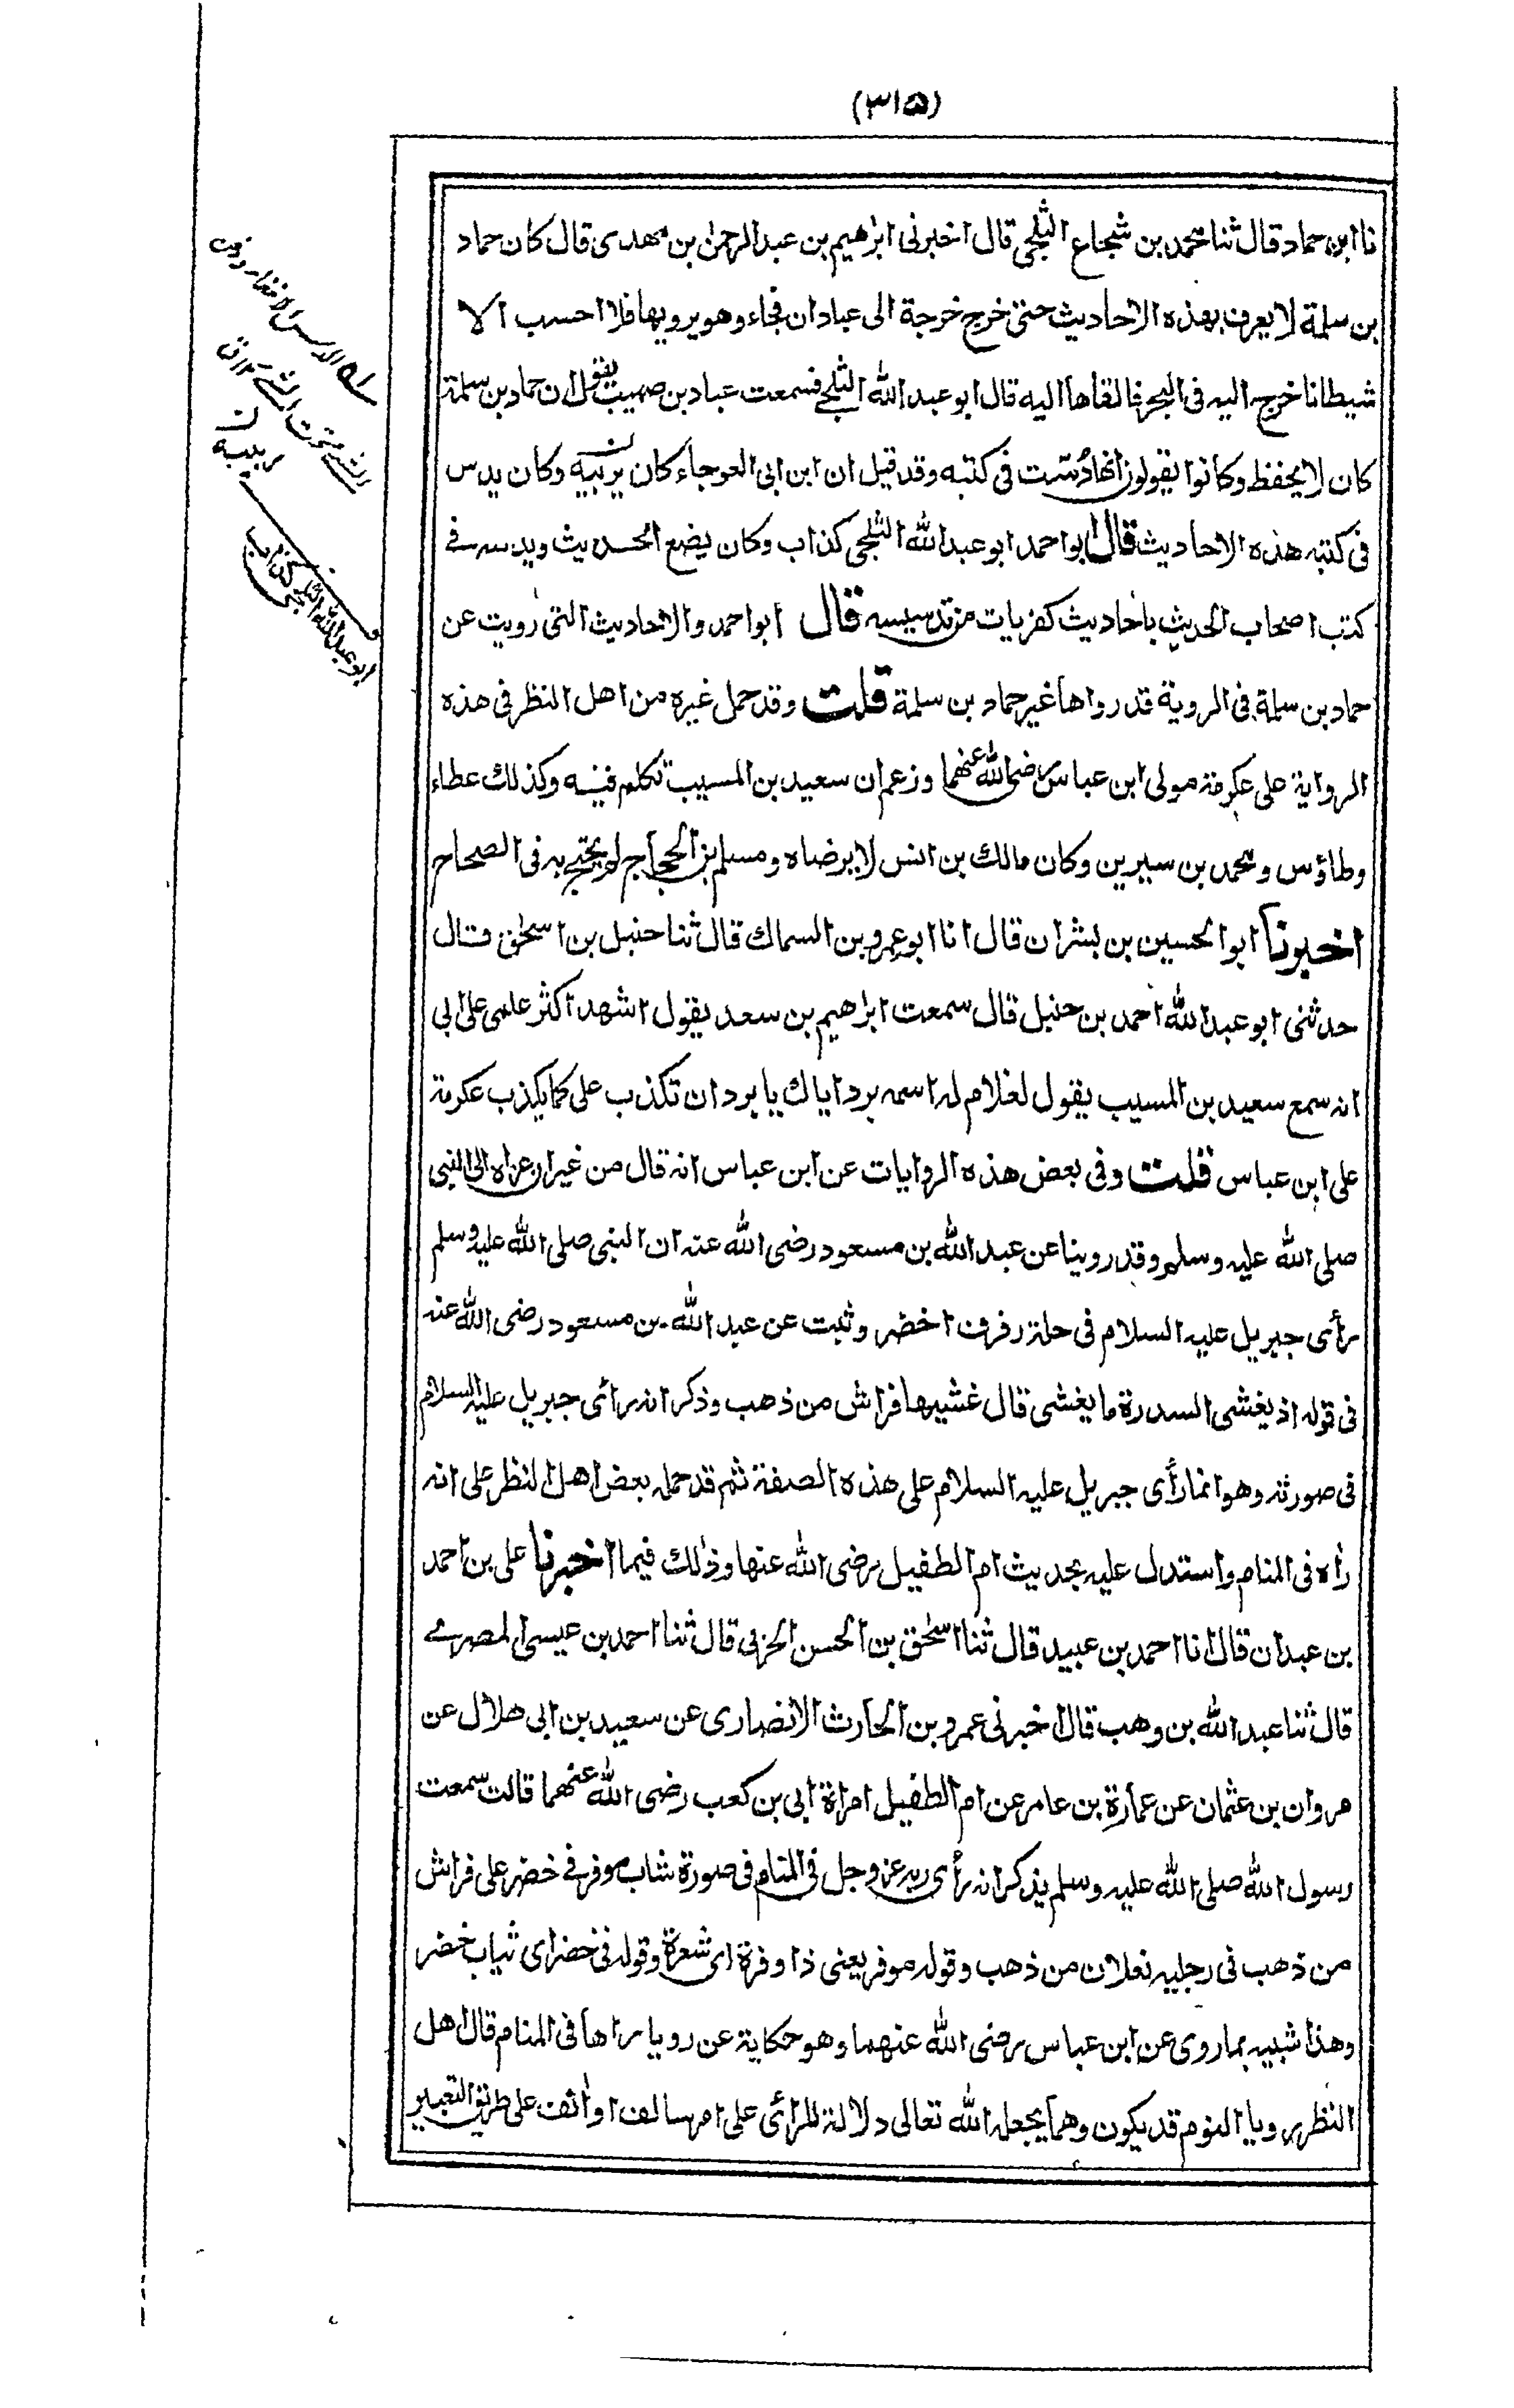 (۳۱۵)
نا ابن حماد قال ثنا محمد بن شجاع الثلجى قال اخبرنى ابراهيم بن عبد الرحمن بن مهدى قال كان حماد
بن سلمة لا يعرف بهذه الاحاديث حتى خرج خرجة الى عبادان فجاء وهو يرويها فلا احسب الا
شيطانا خرج اليه فى البحر فالقاها اليه قال ابو عبد الله الثلجى فسمعت عباد بن صهيب يقول ان حماد بن سلمة
كان لا يحفظ وكانوا يقولون انها دست فى كتبه وقد قيل ان ابن ابى العوجاء كان ربيبه وكان يدس
فى كتبه هذه الاحاديث قال ابو احمد ابو عبد الله الثلجى كذاب وكان يضع الحديث ويدسه فى
كتب اصحاب الحديث باحاديث كفريات من تدسيسه قال ابو احمد والاحاديث التى رويت عن
حماد بن سلمة فى الروية قد رواها غير حماد بن سلمة قلت وقد حمل غيره من اهل النظر فى هذه
الرواية على عكرمة مولى ابن عباس رضى الله عنهما وزعم ان سعيد بن المسيب تكلم فيه وكذلك عطاء
وطاؤس ومحمد بن سيرين وكان مالك بن انس لا يرضاه ومسلم بن الحجاج لم يحتج به فى الصحاح
اخبرنا ابو الحسين بن بشران قال انا ابو عمرو بن السماك قال ثنا حنبل بن اسحٰق قال
حدثنى ابو عبد الله احمد بن حنبل قال سمعت ابراهيم بن سعد يقول اشهد اكثر علمى على ابى
انه سمع سعيد بن المسيب يقول لغلام له اسمه برد اياك يا برد ان تكذب على كما يكذب عكرمة
على ابن عباس قلت وفى بعض هذه الروايات عن ابن عباس انه قال من غير ان عزاه الى النبى
صلى الله عليه وسلم وقد روينا عن عبد الله بن مسعود رضى الله عنه ان النبى صلى الله عليه وسلم
رأى جبريل عليه السلام فى حلة رفرف اخضر وثبت عن عبد الله بن مسعود رضى الله عنه
فى قوله اذ يغشى السدرة ما يغشى قال غشيها فراش من ذهب وذكر انه رأى جبريل عليه السلام
فى صورته وهو انما رأى جبريل عليه السلام على هذه الصفة ثم قد حمله بعض اهل النظر على انه
رأه فى المنام واستدل عليه بحديث ام الطفيل رضى الله عنها وذلك فيما اخبرنا على بن احمد
بن عبدان قال انا احمد بن عبيد قال ثنا اسحٰق بن الحسن الحربى قال ثنا احمد بن عيسى المصرى
قال ثنا عبد الله بن وهب قال اخبرنى عمرو بن الحارث الانصارى عن سعيد بن ابى هلال عن
مروان بن عثمان عن عمارة بن عامر عن ام الطفيل امراة ابى بن كعب رضى الله عنهما قالت سمعت
رسول الله صلى الله عليه وسلم يذكر انه رأى ربه عز وجل فى المنام فى صورة شاب موفر فى خضر على فراش
من ذهب فى رجليه نعلان من ذهب وقوله موفر يعنى ذا وفرة اى شعرة وقوله فى خضر اى ثياب خضر
وهذا شبيه بما روى عن ابن عباس رضى الله عنهما وهو حكاية عن رويا راها فى المنام قال اهل
النظر رويا النوم قد يكون وهما يجعله الله تعالى دلالة للرائى على امر سالف او انف على طريق التعبير
ربيبه
ابو عبد الله الثلجى كذاب